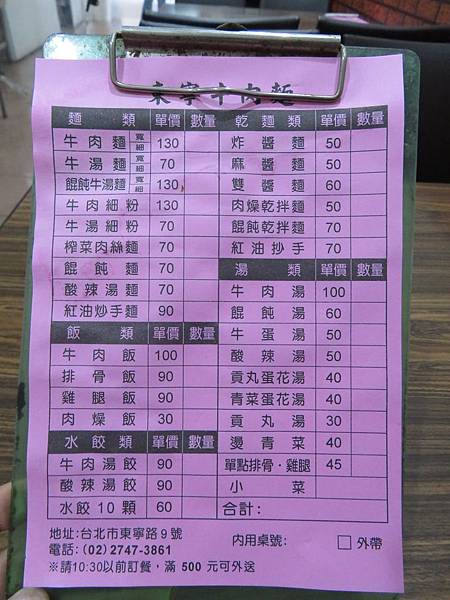 東寧牛肉麵
麵類 單價 數量
牛肉麵 寬 細 130
牛湯麵 寬 細 70
餛飩牛湯麵 寬 細 130
牛肉細粉 130
牛湯細粉 70
榨菜肉絲麵 70
餛飩麵 70
酸辣湯麵 70
紅油炒手麵 90
飯類 單價 數量
牛肉飯 100
排骨飯 90
雞腿飯 90
肉燥飯 30
水餃類 單價 數量
牛肉湯餃 90
酸辣湯餃 90
水餃10顆 60
乾麵類 單價 數量
炸醬麵 50
麻醬麵 50
雙醬麵 60
肉燥乾拌麵 50
餛飩乾拌麵 70
紅油抄手 70
湯類 單價 數量
牛肉湯 100
餛飩湯 60
牛蛋湯 50
酸辣湯 50
貢丸蛋花湯 40
青菜蛋花湯 40
貢丸湯 30
燙青菜 40
單點排骨·雞腿 45
小菜
合計:
地址:台北市東寧路9號
電話:(02)2747-3861
內用桌號: □外帶
※請10:30以前訂餐,滿 500 元可外送